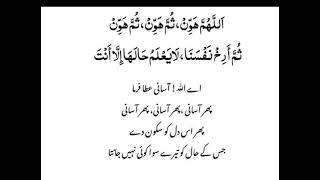 اَللّٰهُمَّ هَوِّنْ، ثُمَّ هَوِّنْ، ثُمَّ هَوِّنْ
ثُمَّ أَرِحْ نَفْسَنَا، لَا يَعْلَمُ حَالَهَا إِلَّا أَنْتَ
اے اللہ ! آسانی عطا فرما
پھر آسانی ، پھر آسانی، پھر آسانی
پھر اس دل کو سکون دے
جس کے حال کو تیرے سوا کوئی نہیں جانتا